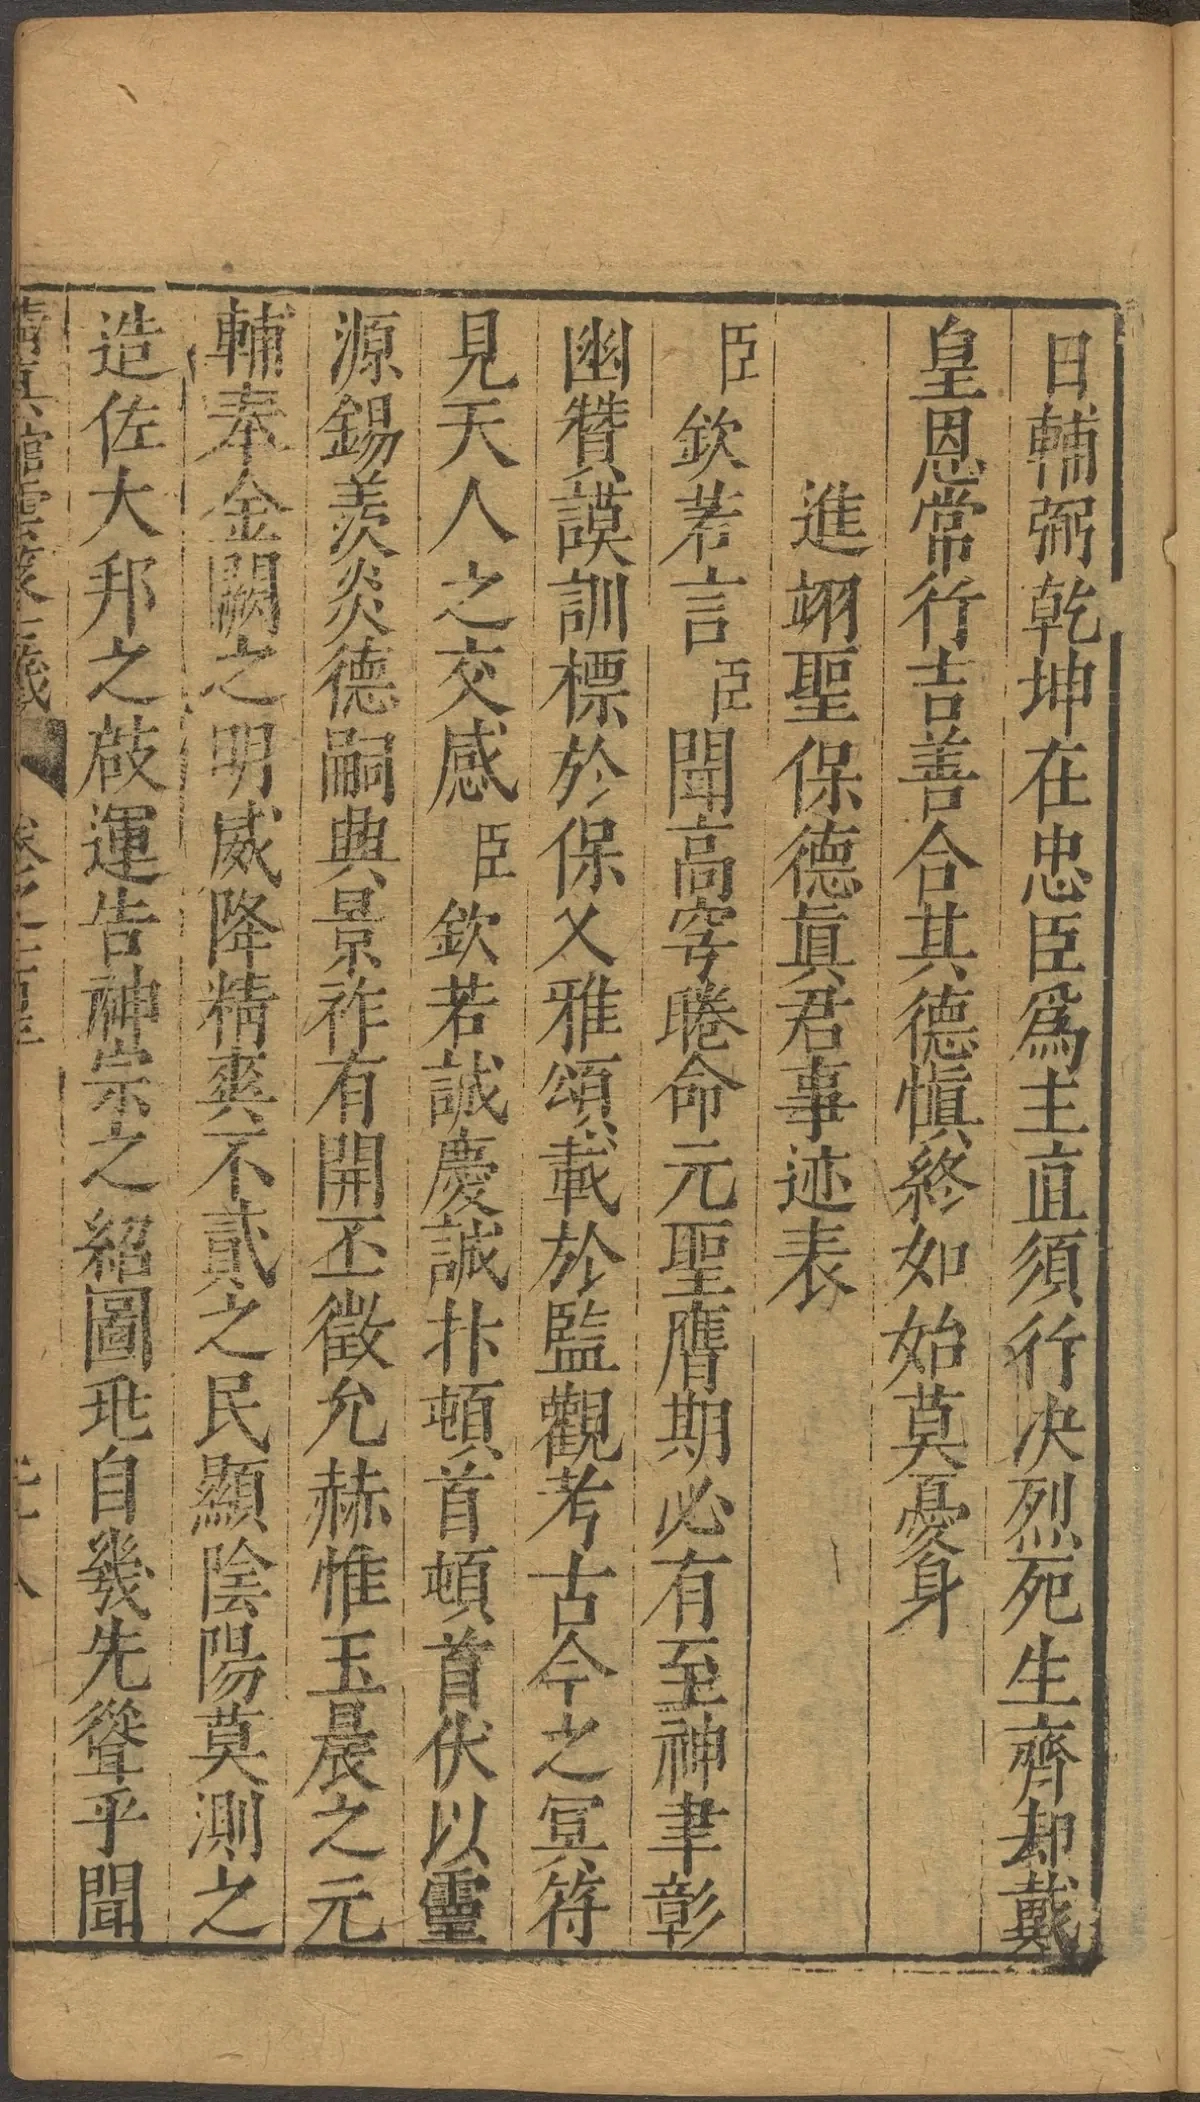 日輔弼乾坤在忠臣爲主直須行决烈死生齊却戴
皇恩常行吉善合其德愼終如始莫憂身
進翊聖保德眞君事迹表
臣欽若言臣聞高穹睠命元聖膺期必有至神聿彰
幽贊謨訓標於保乂雅頌載於監觀考古今之冥符
見天人之交感臣欽若誠慶誠抃頓首頓首伏以靈
源錫羨炎德嗣興景祚有開丕徵允赫惟玉晨之元
輔奉金闕之明威降精爽不貳之民顯陰陽莫測之
造佐大邦之啟運告神宗之紹圖兆自幾先聳乎聞
清眞館雲笈七籤